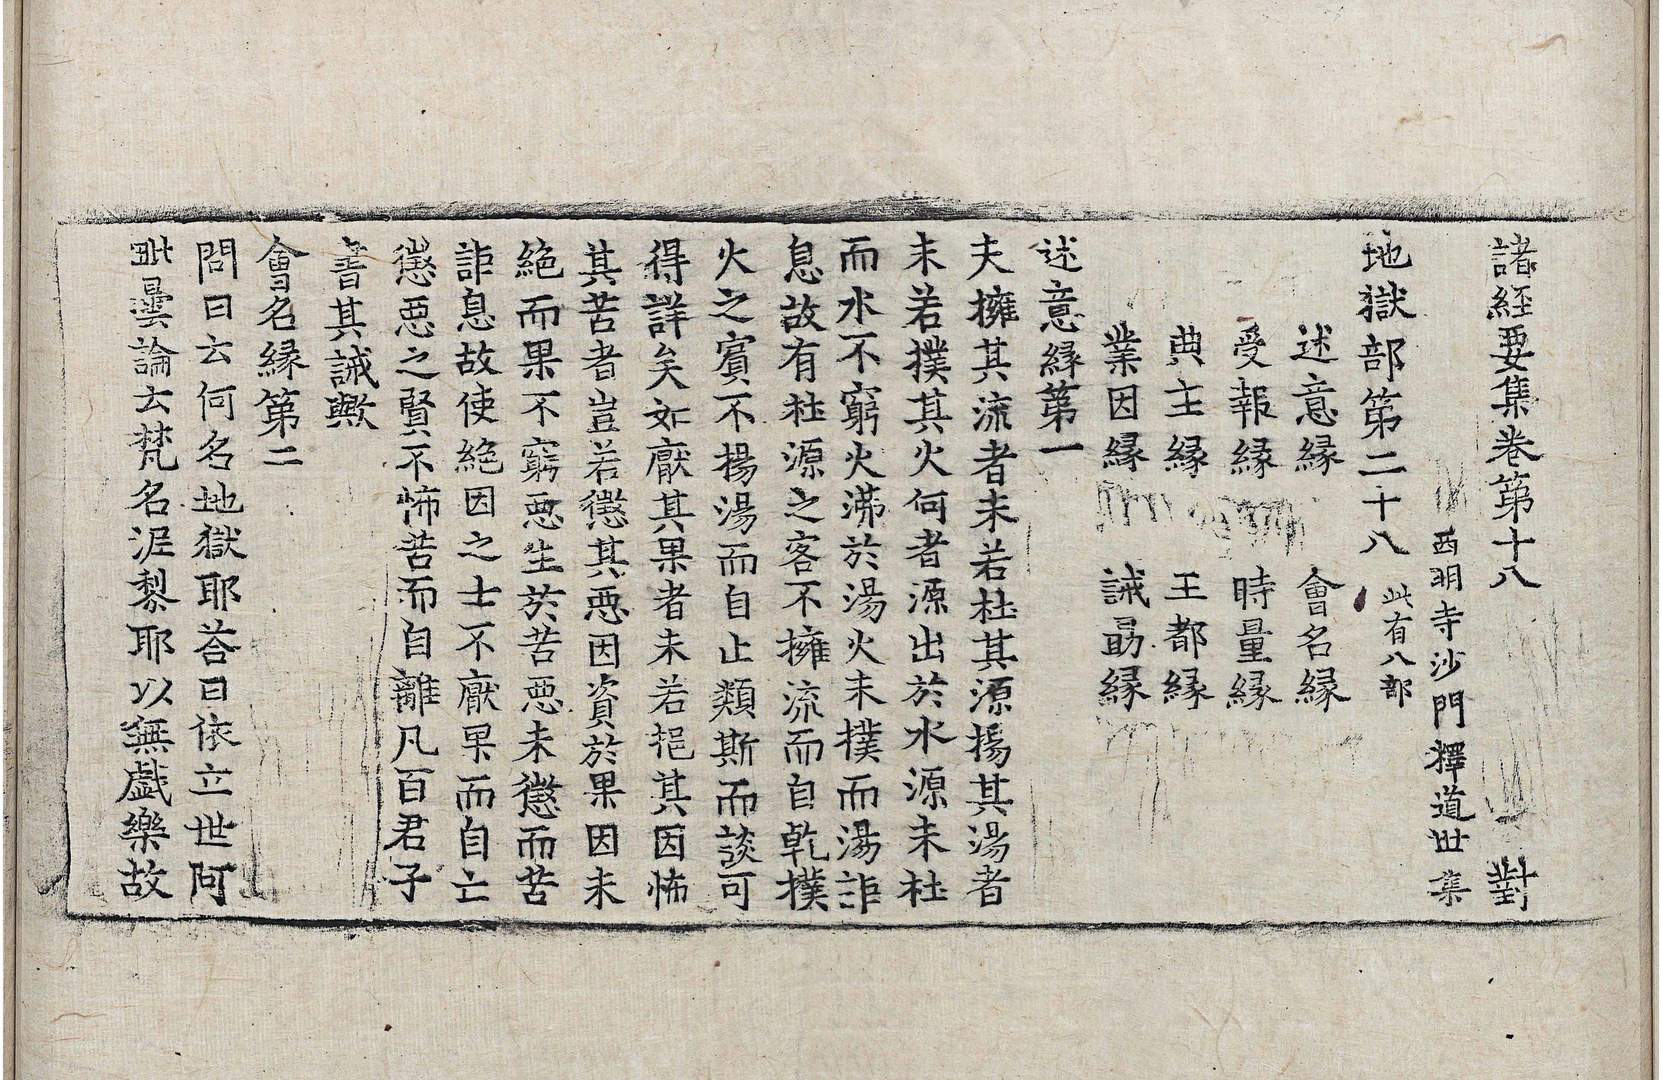 諸經要集卷第十八 對
西明寺沙門釋道世 集
地獄部第二十八 此有八部
述意緣 會名緣
受報緣 時量緣
典主緣 王都緣
業因緣 誡勗緣
述意緣第一
夫擁其流者未若杜其源揚其湯者
未若撲其火何者源出於水源未杜
而水不窮火沸於湯火未撲而湯詎
息故有杜源之客不擁流而自乾撲
火之賓不揚湯而自止類斯而談可
得詳矣如厭其果者未若挹其因怖
其苦者豈若懲其惡因資於果因未
絕而果不窮惡生於苦惡未懲而苦
詎息故使絕因之士不厭果而自亡
懲惡之賢不怖苦而自離凡百君子
書其誡歟
會名緣第二
問曰云何名地獄耶荅曰依立世阿
毗曇論云梵名泥犁耶以無戲樂故